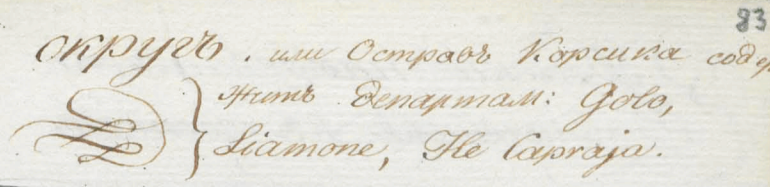 83
округъ. или Островъ Корсика содер
житъ департам: Golo,
Liamone, He Capraja.